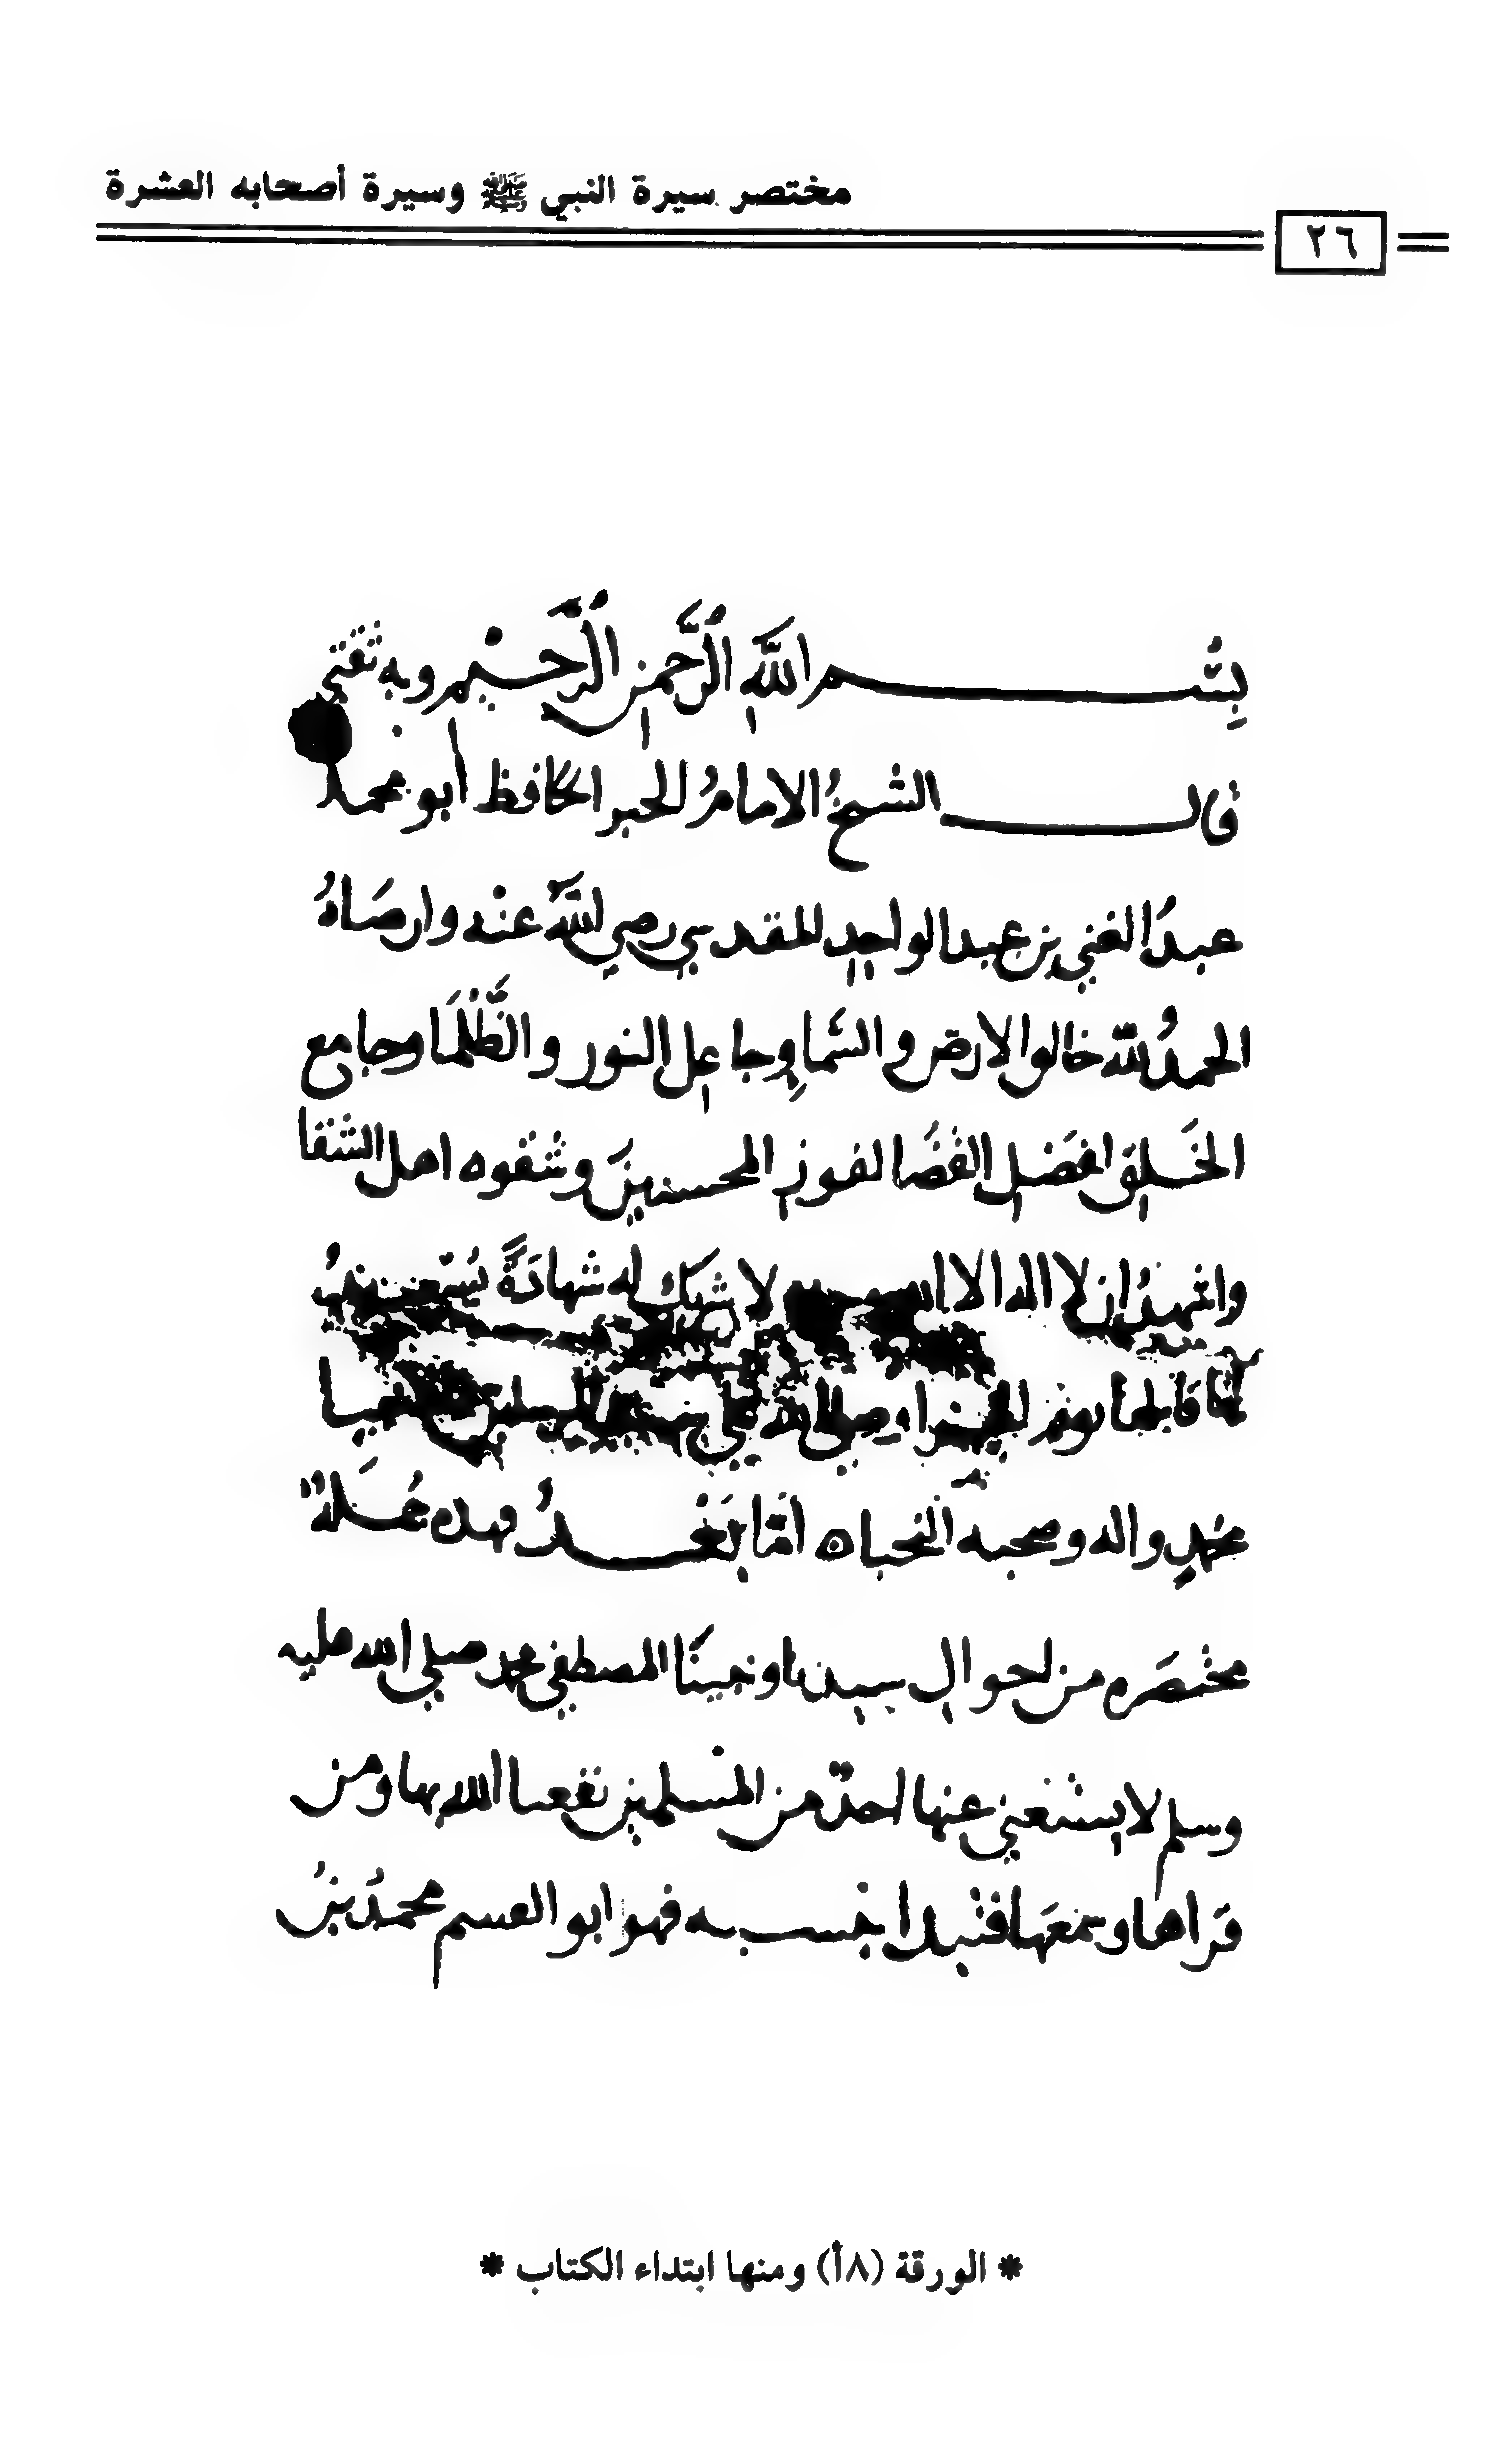 مختصر سيرة النبي ﷺ وسيرة أصحابه العشرة
٢٦
بسم الله الرحمن الرحيم وبه ثقتي
قال الشيخ الامام الحبر الحافظ أبو محمد
عبد الغني بن عبد الواحد المقدسي رضي الله عنه وارضاه
الحمد لله خالق الارض والسما وجاعل النور والظلما وجامع
الخلق لفصل القضا لفوز المحسنين وشقوه اهل الشقا
واشهد ان لا اله الا الله لا شريك له شهادة
يوم وصلى الله على
محمد واله وصحبه النجباه امّا بعد فهذه جملة
مختصره من احوال سيدنا ونبينا المصطفى محمد صلى الله عليه
وسلم لا يستغني عنها احد من المسلمين نفعنا الله بها ومن
قراها وسمعها فنبدا بنسبه فهو ابو القسم محمد بن
* الورقة (٨أ) ومنها ابتداء الكتاب *